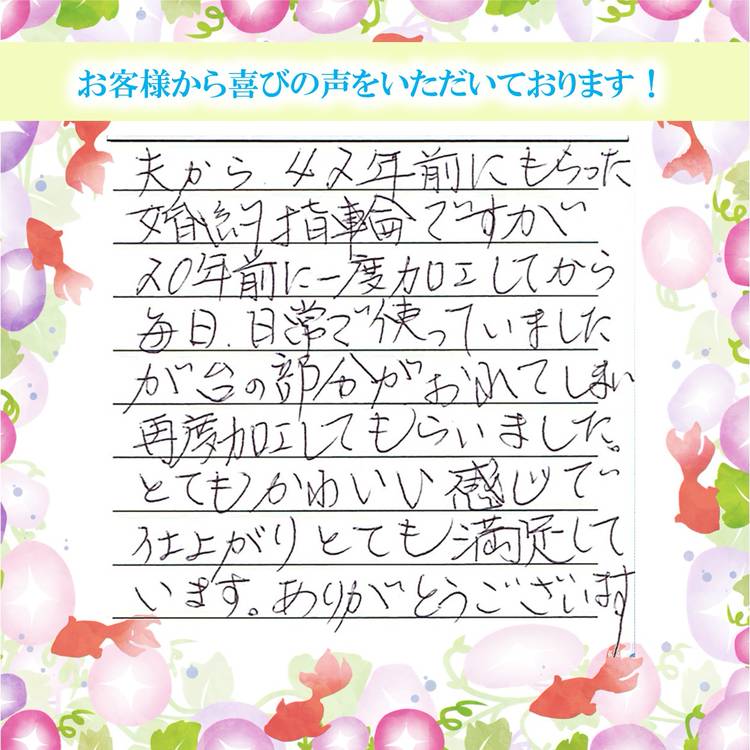 お客様から喜びの声をいただいております！
夫から 42年前にもらった
婚約指輪ですが
20年前に一度加工してから
毎日、日常で使っていました
が台の部分がおれてしまい
再度加工してもらいました。
とてもかわいい感じで
仕上がりとても満足して
います。ありがとうございます